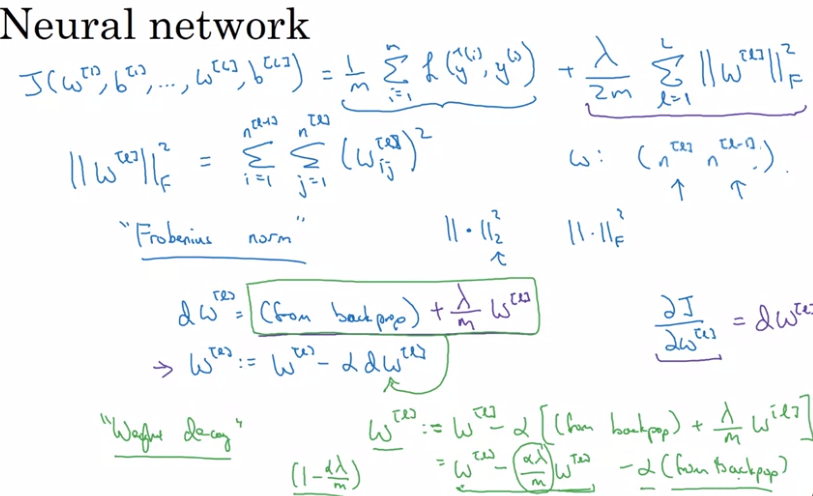 Neural network
J(w^[1], b^[1], ..., w^[L], b^[L]) = 1/m Σ_{i=1}^{n} L(ŷ^(i), y^(i)) + λ/2m Σ_{l=1}^{L} ||w^[l]||_F^2
||w^[l]||_F^2 = Σ_{i=1}^{n^[l-1]} Σ_{j=1}^{n^[l]} (w_ij^[l])^2   w: (n^[l] n^[l-1]).
"Frobenius norm"   ||·||_2^2   ||·||_F^2
dw^[l] = (from backprop) + λ/m w^[l]   ∂J/∂w^[l] = dw^[l]
→ w^[l] := w^[l] - α dw^[l]
"Weight decay"   w^[l] := w^[l] - α [(from backpop) + λ/m w^[l]]
(1 - αλ/m)   = w^[l] - αλ/m w^[l] - α (from Backpop)